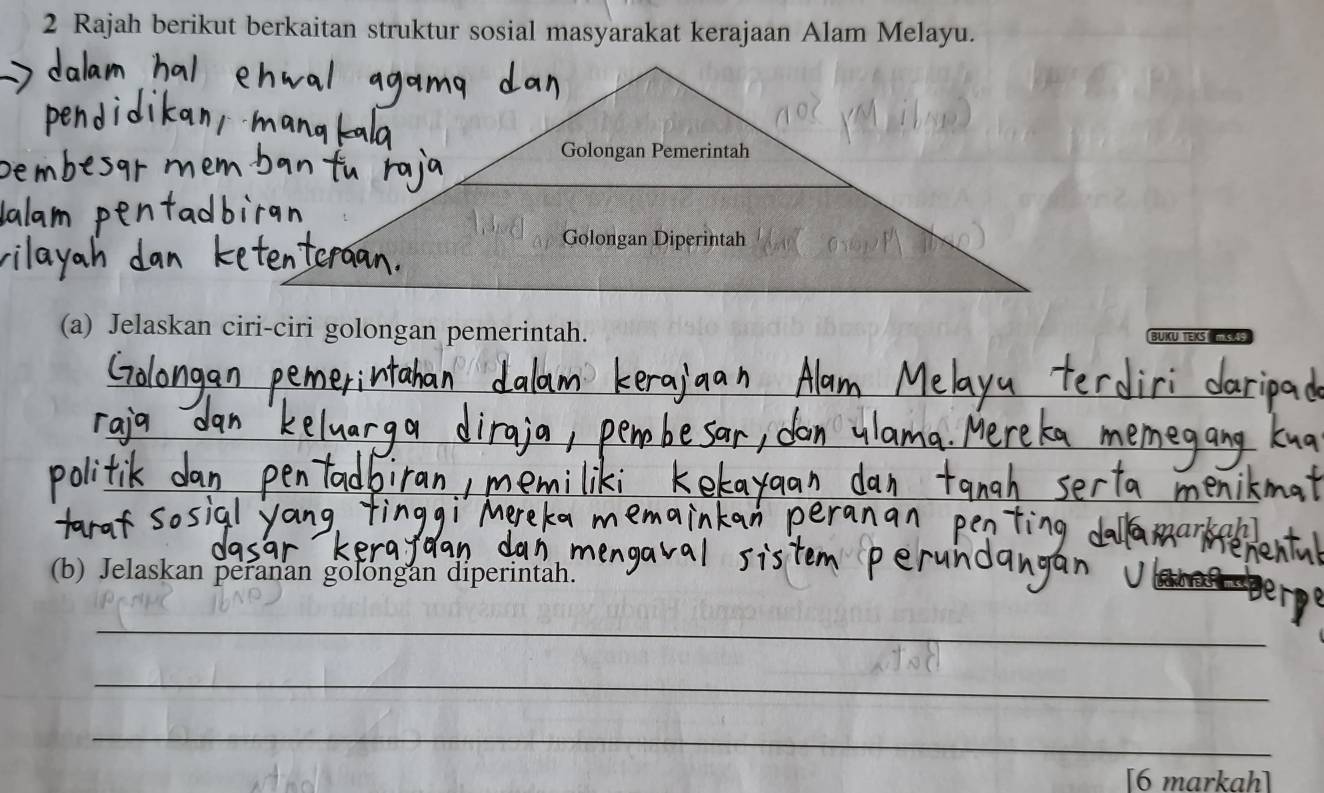 2 Rajah berikut berkaitan struktur sosial masyarakat kerajaan Alam Melayu.
→ dalam hal ehwal agama dan
pendidikan, manakala
pembesar membantu raja
dalam pentadbiran
wilayah dan ketenteraan.
Golongan Pemerintah
Golongan Diperintah
(a) Jelaskan ciri-ciri golongan pemerintah.
BUKU TEKS m.s.49
Golongan pemerintahan dalam kerajaan Alam Melayu terdiri daripad
raja dan keluarga diraja, pembesar, dan ulama. Mereka memegang kua
politik dan pentadbiran, memiliki kekayaan dan tanah serta menikmat
taraf sosial yang tinggi Mereka memainkan peranan penting dalam menentuk
markah]
dasar kerajaan dan mengawal sistem perundangan Ulama berpe
(b) Jelaskan peranan golongan diperintah.
[6 markah]